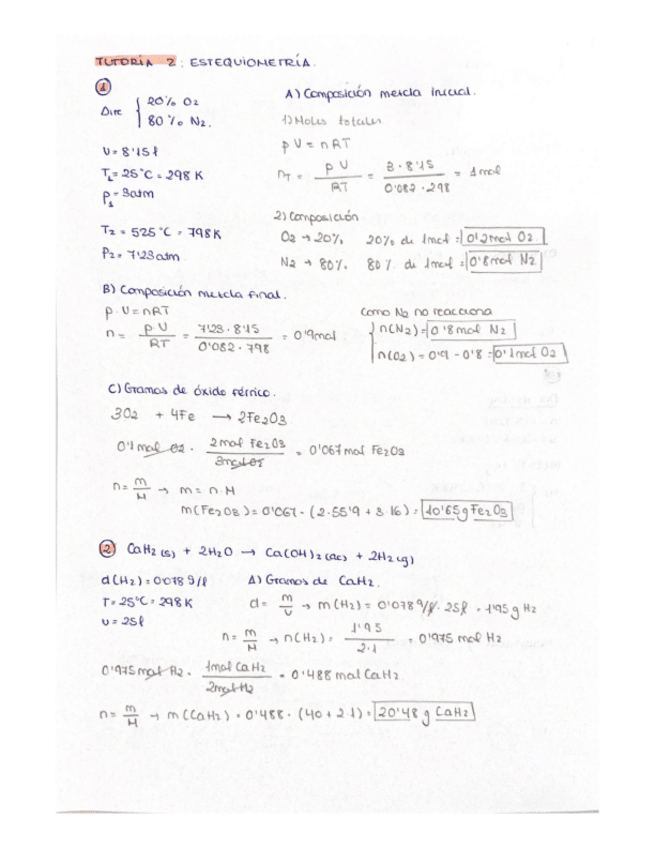 TUTORÍA 2: ESTEQUIOMETRÍA.
①
Aire { 20% O2
80% N2.
V = 8'15 l
T1 = 25°C = 298 K
P1 = 3atm
T2 = 525°C = 798K
P2 = 7'123 atm
A) Composición mezcla inicial.
1) Moles totales
pV = nRT
nT = pV / RT = 3 · 8'15 / 0'082 · 298 = 1 mol
2) Composición
O2 → 20% 20% de 1mol = 0'2mol O2
N2 → 80% 80% de 1mol = 0'8mol N2
B) Composición mezcla final.
p · V = nRT
n = pV / RT = 7'123 · 8'15 / 0'082 · 798 = 0'9mol
como N2 no reacciona
n(N2) = 0'8mol N2
n(O2) = 0'9 - 0'8 = 0'1mol O2
C) Gramos de óxido férrico.
3O2 + 4Fe → 2Fe2O3
0'1 mol O2 · 2mol Fe2O3 / 3mol O2 = 0'067 mol Fe2O3
n = m / M → m = n · M
m(Fe2O3) = 0'067 · (2·55'9 + 3·16) = 10'65g Fe2O3
② CaH2 (s) + 2H2O → Ca(OH)2 (ac) + 2H2 (g)
d(H2) = 0'078 g/l
T = 25°C = 298K
V = 25l
A) Gramos de CaH2.
d = m / V → m(H2) = 0'078 g/l · 25l = 1'95 g H2
n = m / M → n(H2) = 1'95 / 2·1 = 0'975 mol H2
0'975 mol H2 · 1mol CaH2 / 2mol H2 = 0'488 mol CaH2
n = m / M → m(CaH2) = 0'488 · (40 + 2·1) = 20'48 g CaH2